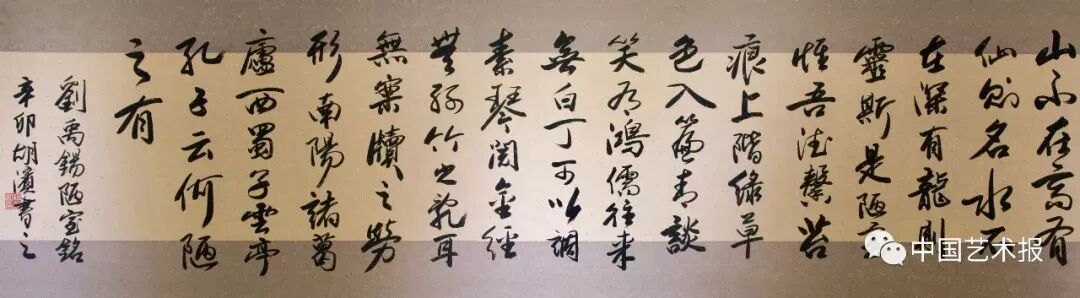 山不在高有
仙則名水不
在深有龍則
靈斯是陋室
惟吾德馨苔
痕上階綠草
色入簾青談
笑有鴻儒往来
無白丁可以調
素琴閱金經
無絲竹之亂耳
無案牘之勞
形南陽諸葛
廬西蜀子雲亭
孔子云何陋
之有
劉禹錫陋室銘
辛卯胡濱書之
中国艺术报